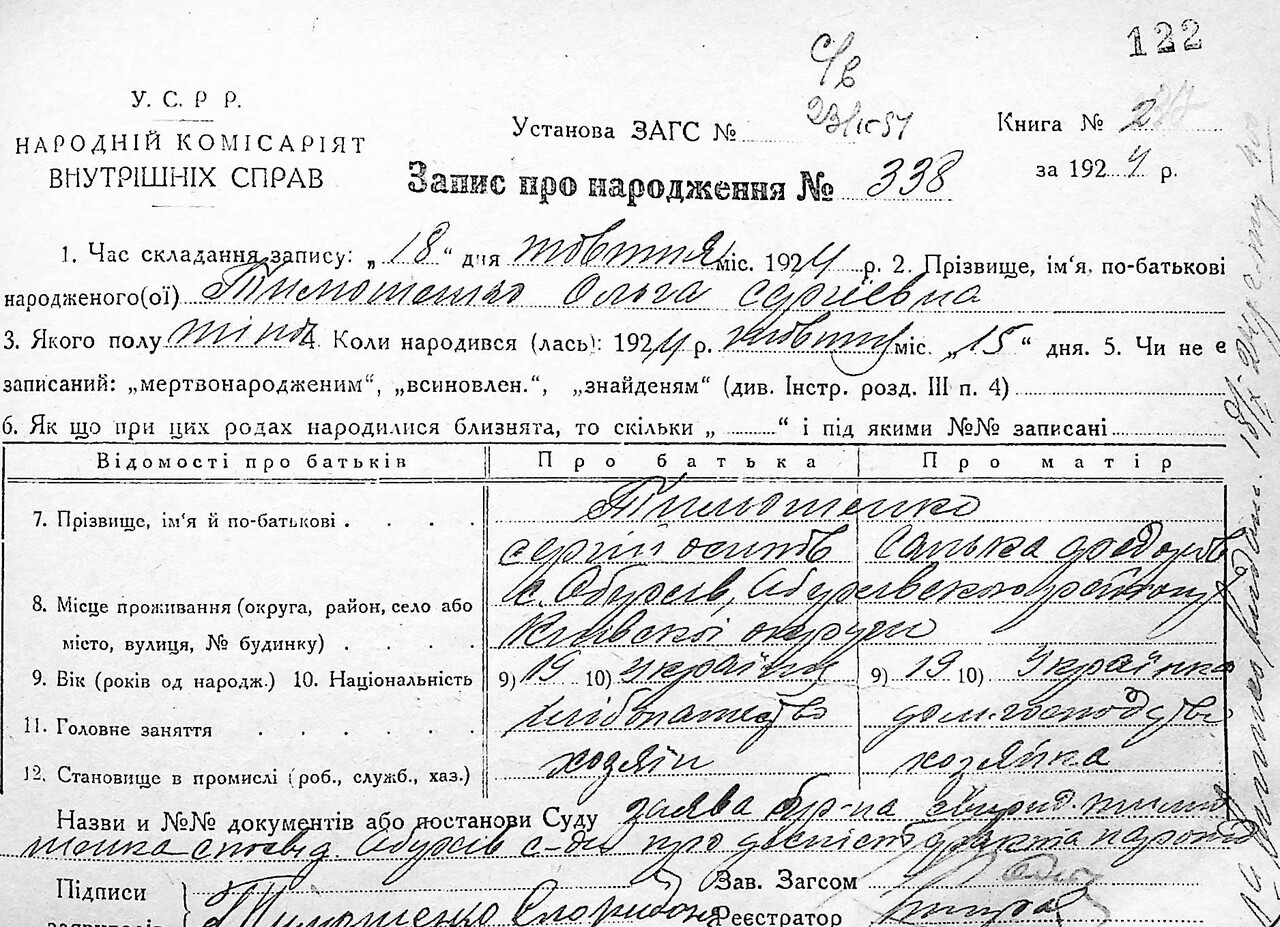 122
с/в
У. С. Р Р.
НАРОДНІЙ КОМІСАРІЯТ
ВНУТРІШНІХ СПРАВ
Установа ЗАГС №
Книга № 2
за 1924 р.
Запис про народження № 338
1. Час складання запису: „ 18 “ дня жовтня міс. 1924 р. 2. Прізвище, ім'я, по-батькові
народженого(ої) Тимошенко Ольга Сергієвна
3. Якого полу жіноч 4. Коли народився (лась): 1924 р. жовтня міс. „ 15 “ дня. 5. Чи не є
записаний: „мертвонародженим“, „всиновлен.“, „знайденям“ (див. Інстр. розд. III п. 4)
6. Як що при цих родах народилися близнята, то скільки „ “ і під якими №№ записані
Відомості про батьків Про батька Про матір
7. Прізвище, ім'я й по-батькові Тимошенко
Сергій Осипов Санька Федоров
8. Місце проживання (округа, район, село або с. Обухів, Обухівського району
місто, вулиця, № будинку) Київської округи
9. Вік (років од народж.) 10. Національність 9) 19 10) Українец 9) 19 10) Українка
11. Головне заняття хлібопашество дом. господство
12. Становище в промислі (роб., служб., хаз.) хозяїн хозяйка
Назви и №№ документів або постанови Суду заява гр-на Свирид. Тимо
шенка Обухів с-ди про дійсність факта народ
Підписи Зав. Загсом
заявителів Тимошенко Реєстратор